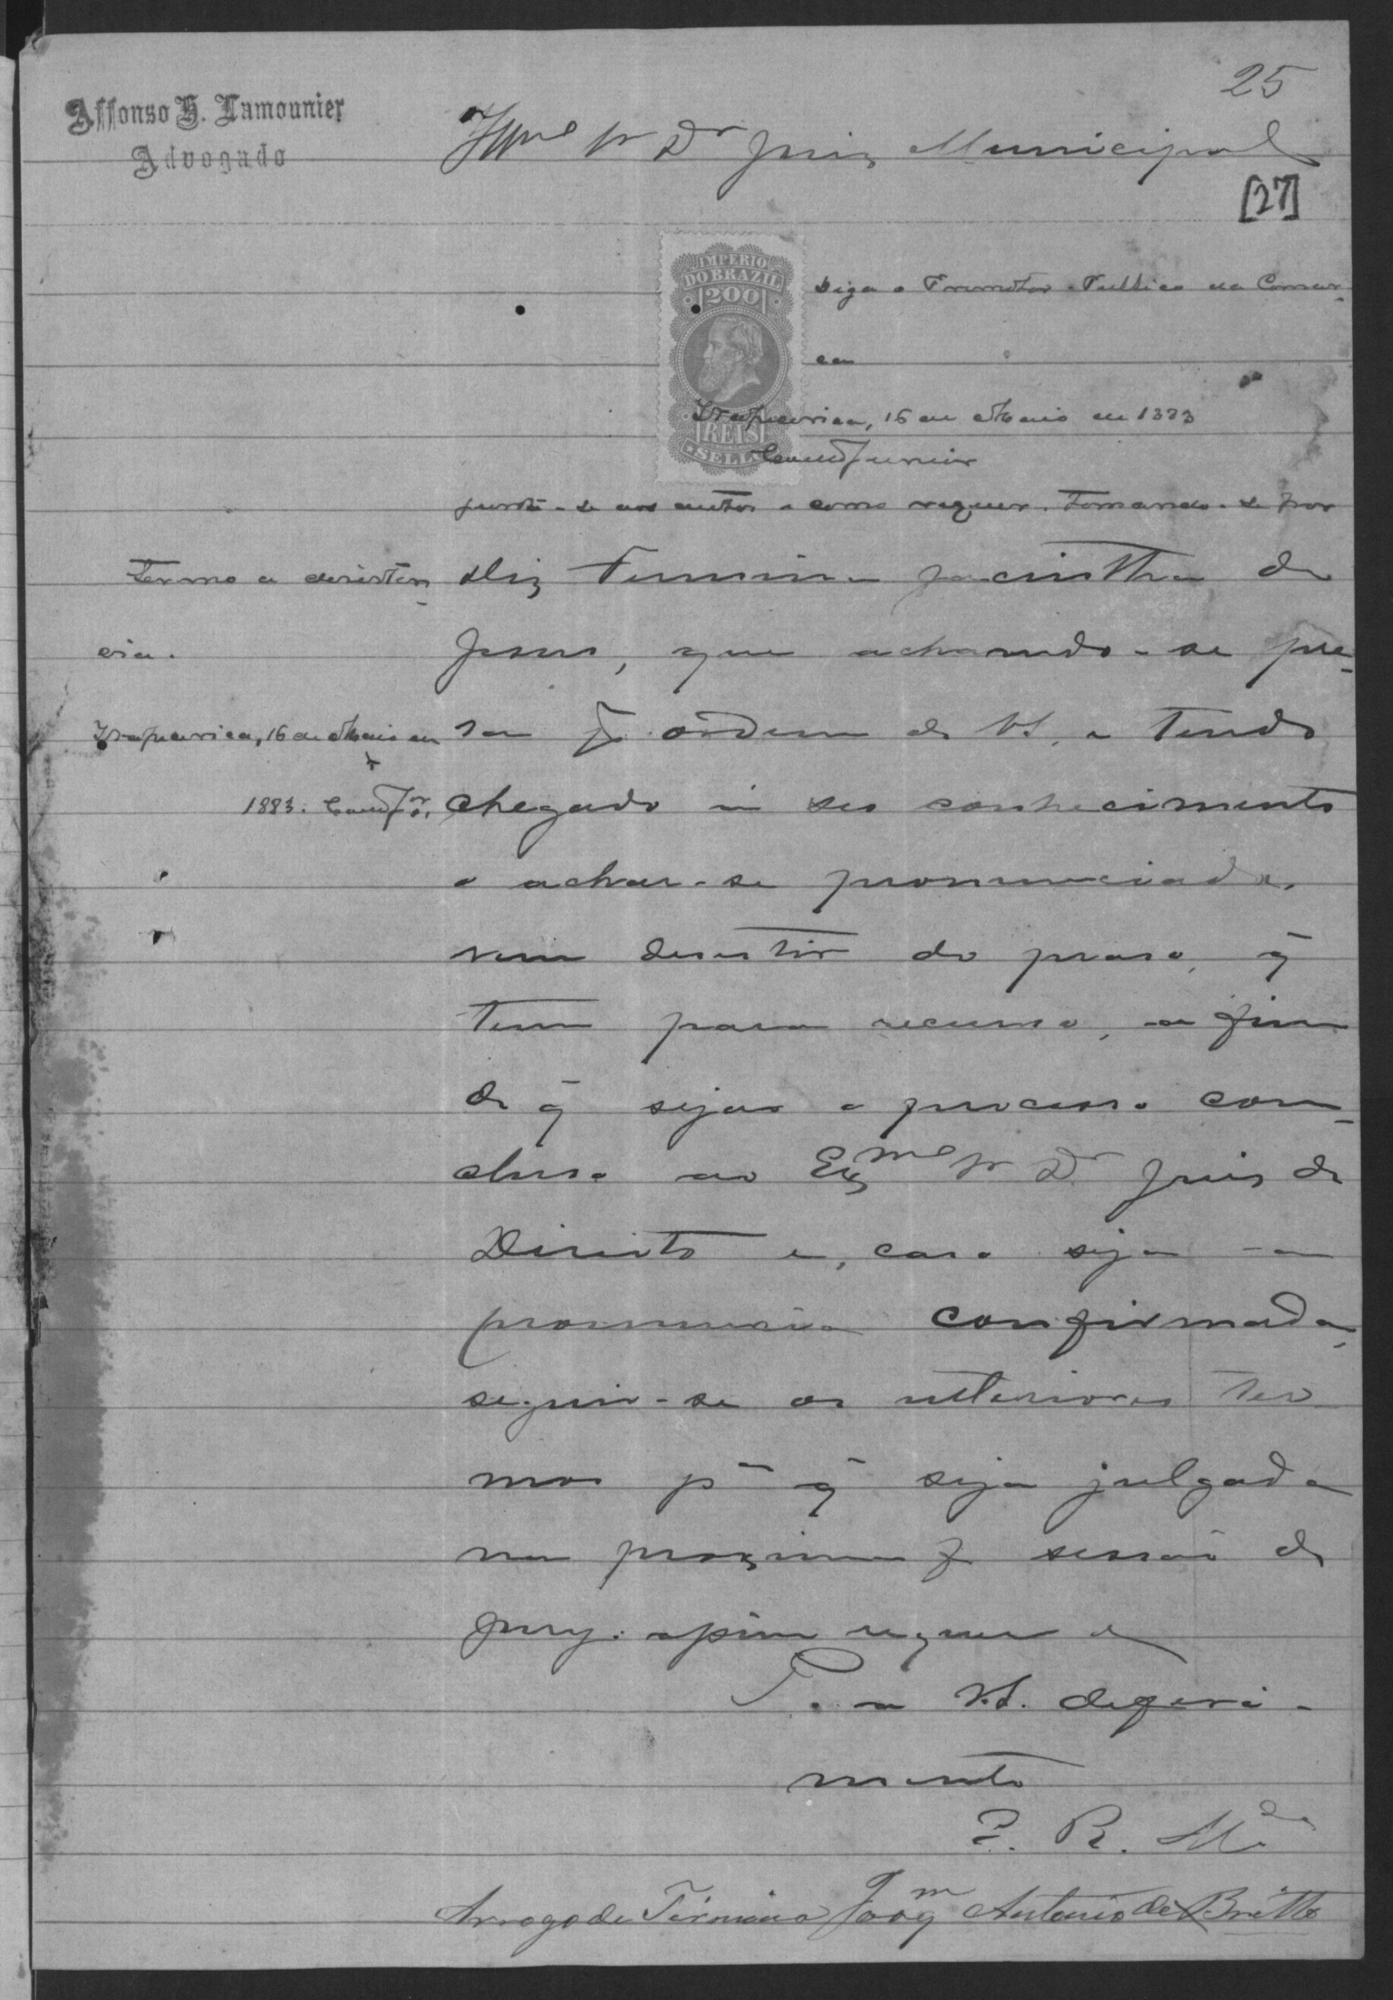 25
Affonso H. Lamounier
Advogado
Illmº Sr Dr Juiz Municipal
[27]
IMPERIO
DO BRAZIL
200
REIS
SELLO
Diga o Promotor Publico da Comar-
ca
Itaparica, 16 de Maio de 1883
Junior
Junte-se aos autos e como requer, tomando-se por
termo a desisten-
cia.
Itaparica, 16 de Maio de
1883.
Diz Firmina Jacinttha de
Jesus, que achando-se pre-
sa á ordem de V.S. e tendo
chegado in seo conhecimento
o achar-se pronunciada,
vem desistir do praso, q̃
tem para recurso, a fim
de q̃ seja o processo con-
cluso ao Exmº Sr Dr Juis de
Direito e, caso seja a
pronuncia confirmada,
seguir-se os ulteriores ter
mos pª q̃ seja julgada
na proxima sessão do
Jury. Assim requer e
P. a V.S. deferi-
mento
E. R. Mce
Arrogo de Firmina Joaqm Antonio de Britto